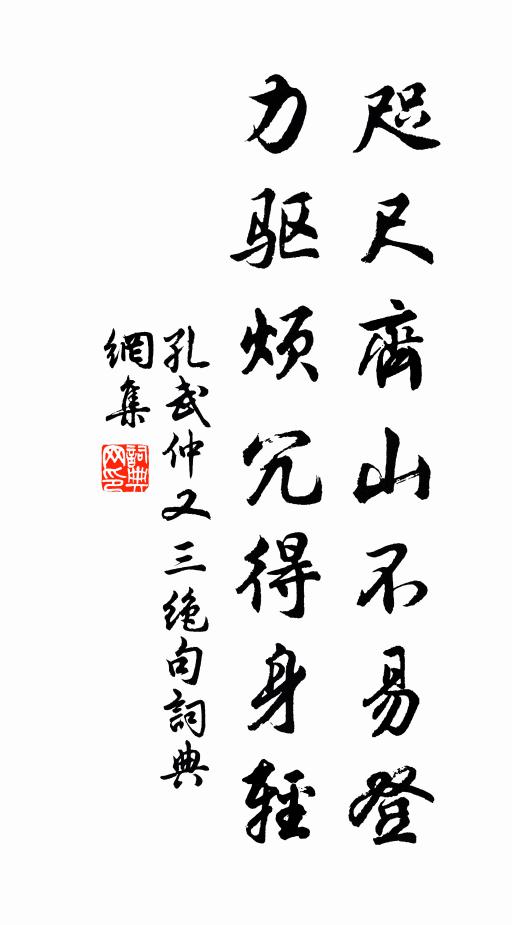 咫尺齊山不易登
力驱烦冗得身輕
孔武仲又三绝句詞典
網集
詞典
网印